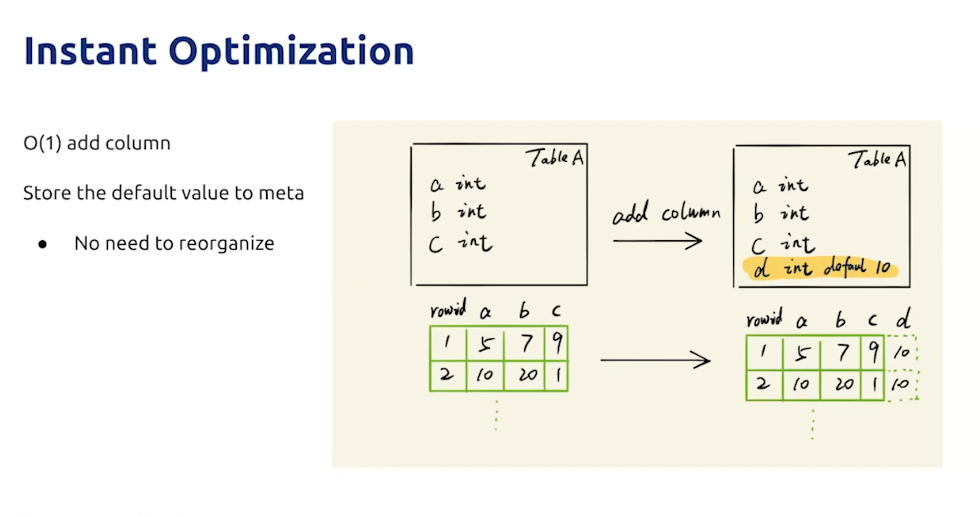 Instant Optimization
O(1) add column
Store the default value to meta
● No need to reorganize
Table A
a int
b int
c int
add column
Table A
a int
b int
c int
d int defaul 10
rowid a b c
1 5 7 9
2 10 20 1
rowid a b c d
1 5 7 9 10
2 10 20 1 10